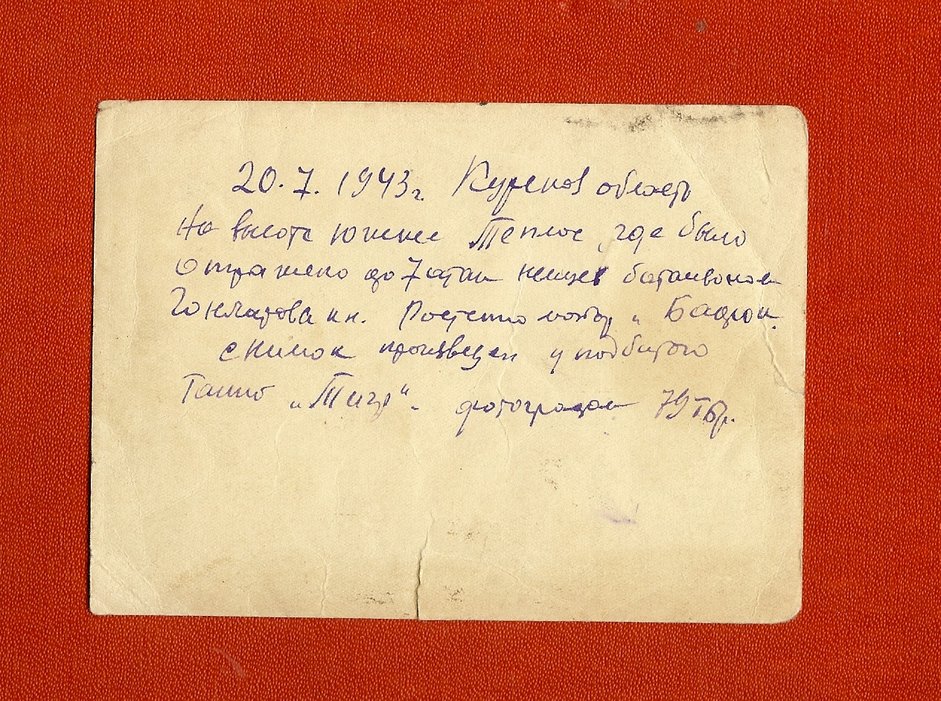 20.7.1943г. Курская область
На высоте южнее Теплое, где было
отражено до 7 атак немцев батальоном
снимок произведен у подбитого
Танка „Тигр“. фотографом 79 тбр.